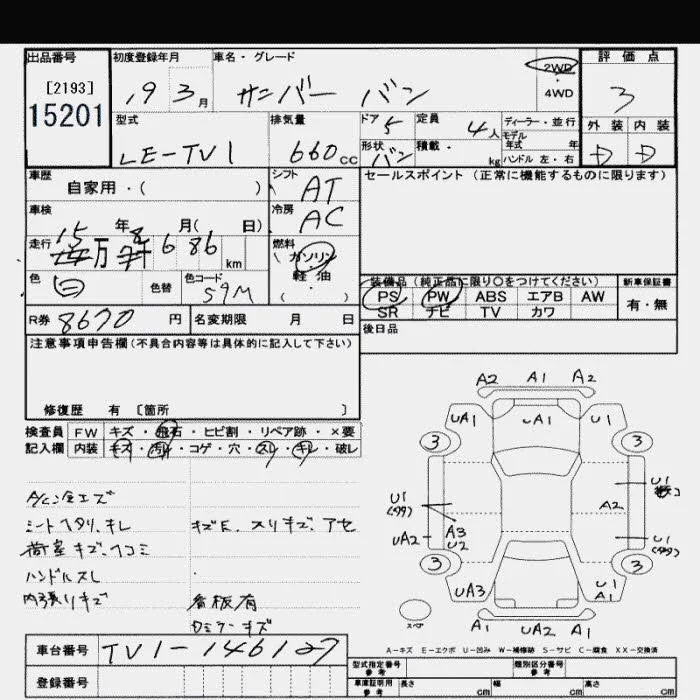 出品番号 初度登録年月 車名・グレード 2WD・4WD 評価点
[2193]
15201
19 3月 サンバー バン 3
型式 排気量 ドア 定員 ディーラー・並行 外装 内装
LE-TV1 660cc 5 4人 モデル年式 年 D D
形状 バン 積載・ kg ハンドル 左・右
車歴 シフト セールスポイント(正常に機能するものに限ります)
自家用・( ) AT
車検 冷房
15年8月( 日) AC
走行 燃料
万 686 km ガソリン
軽・油
( )
色 白 色替 色コード 59M
装備品(純正品に限り〇をつけてください) 新車保証書
PS PW ABS エアB AW 有・無
SR ナビ TV カワ
R券 8670円 名変期限 月 日
後日品
注意事項申告欄(不具合内容等は具体的に記入して下さい)
修復歴 有 〔箇所 〕
検査員 FW キズ・飛石・ヒビ割・リペア跡・×要
記入欄 内装 キズ・汚れ・コゲ・穴・スレ・キレ・破レ
シートヘタリ、キレ
荷室キズ、ヘコミ
ハンドルスレ
内張りキズ
看板有
A2 A1 A2
UA1 UA1 U1
3 3
U1 U1
A2
UA2 A3 U2 U1
3 3
UA3 U1 A1
スペア A1 UA2 A1
A-キズ E-エクボ U-凹み W-補修跡 S-サビ C-腐食 XX-交換済
車台番号 TV1-146127
登録番号
型式指定番号 参考 類別区分番号 参考
車庫証明用 参考 長さ cm 幅 cm 高さ cm